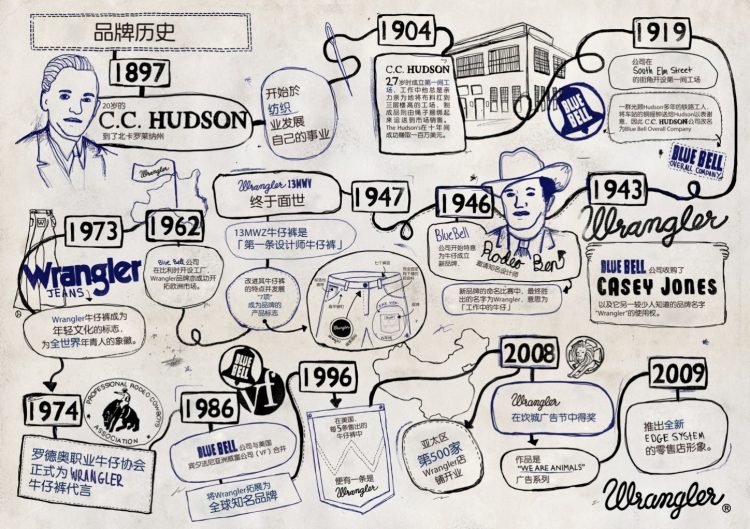 品牌历史
1897
20岁的
C.C. HUDSON
到了北卡罗莱纳州
开始於
纺织
业发展
自己的事业
1904
C.C. HUDSON
27岁时成立第一间工
场，工作中他总是亲
力亲为地将布料扛到
三层楼高的工场，制
成品则由绳子捆绑起
来运送到市场销售。
The Hudson's在十年间
成功赚取一百万美元。
1919
公司在
South Elm Street
的街角开设第一间工场
BLUE BELL
一群光顾Hudson多年的铁路工人，
将车站的铜握钟送给Hudson以表谢
意，因此 C.C. HUDSON将公司改名
为Blue Bell Overall Company
BLUE BELL
OVERALL COMPANY
1943
Wrangler
BLUE BELL 公司收购了
CASEY JONES
以及它另一较少人知道的品牌名字
"Wrangler"的使用权。
1946
Blue Bell
公司开始特意
为牛仔成立
新品牌，
Rodeo Ben
邀请知名设计师
新品牌的命名比赛中，最终胜
出的名字为Wrangler，意思为
「工作中的牛仔」
1947
Wrangler 13MWV
终于面世
13MWZ牛仔裤是
「第一条设计师牛仔裤」
改进其牛仔裤
的特点并发展
"7项"
成为品牌的
产品标志
Wrangler
1962
Wrangler
Blue Bell 公司
在比利时开设工厂，
Wrangler品牌亦成功开
拓欧洲市场。
1973
Wrangler
JEANS
Wrangler牛仔裤成为
年轻文化的标志，
为全世界年青人的象徽。
1974
PROFESSIONAL RODEO COWBOYS
ASSOCIATION
罗德奥职业牛仔协会
正式为 WRANGLER
牛仔裤代言
1986
BLUE BELL
vf
BLUE BELL 公司与美国
宾夕法尼亚洲威富公司 ( VF ) 合并
将Wrangler拓展为
全球知名品牌
1996
在美国，
每5条售出的
牛仔裤中
便有一条是
Wrangler
亚太区
第500家
Wrangler店
铺开业
2008
Wrangler
在坎城广告节中得奖
作品是
"WE ARE ANIMALS"
广告系列
2009
推出全新
EDGE SYSTEM
的零售店形象。
Wrangler®